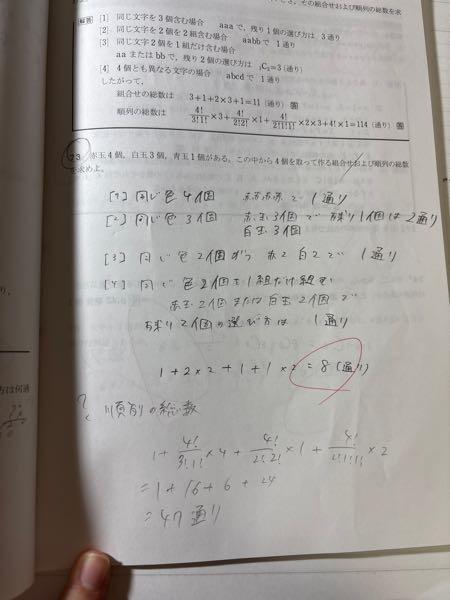 その組合せおよび順列の総数を求
解答 [1] 同じ文字を3個含む場合 aaaで，残り1個の選び方は 3通り
[2] 同じ文字を2個を2組含む場合 aabbで 1通り
[3] 同じ文字2個を1組だけ含む場合
aaまたはbbで，残り2個の選び方は ₃C₂=3(通り)
[4] 4個とも異なる文字の場合 abcdで 1通り
したがって，
組合せの総数は 3+1+2×3+1=11(通り) 答
順列の総数は 4!/3!1!×3+4!/2!2!×1+4!/2!1!1!×2×3+4!×1=114(通り) 答
73 赤玉4個，白玉3個，青玉1個がある。この中から4個を取って作る組合せおよび順列の総数
を求めよ。
[1] 同じ色4個 赤赤赤赤で 1通り
[2] 同じ色3個 赤玉3個で残り1個は2通り
白玉3個
[3] 同じ色2個ずつ 赤2白2で 1通り
[4] 同じ色2個を1組だけ組を
赤玉2個または白玉2個で
残り2個の選び方は 1通り
1+2×2+1+1×2=8(通り)
順列の総数
1+4!/3!1!×4+4!/2!2!×1+4!/2!1!1!×2
=1+16+6+24
=47通り
方は何通